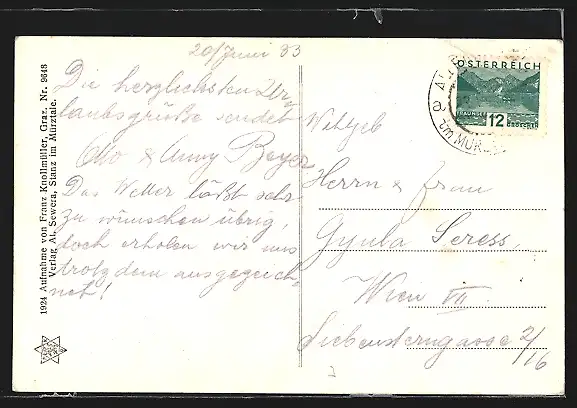 20/Juni 33
Die herzlichsten Ur-
laubsgrüße sendet
Otto & Anny Beyer
Das Wetter läßt sehr
zu wünschen übrig,
doch erholen wir uns
trotzdem ausgezeich-
net!
ÖSTERREICH
TRAUNSEE
12 GROSCHEN
Herrn & Frau
Gyula Seress
Wien VII.
Siebensterngasse 2/16
1924 Aufnahme von Franz Knollmüller, Graz. Nr. 9648
Verlag Al. Sewera, Stanz im Mürztale.